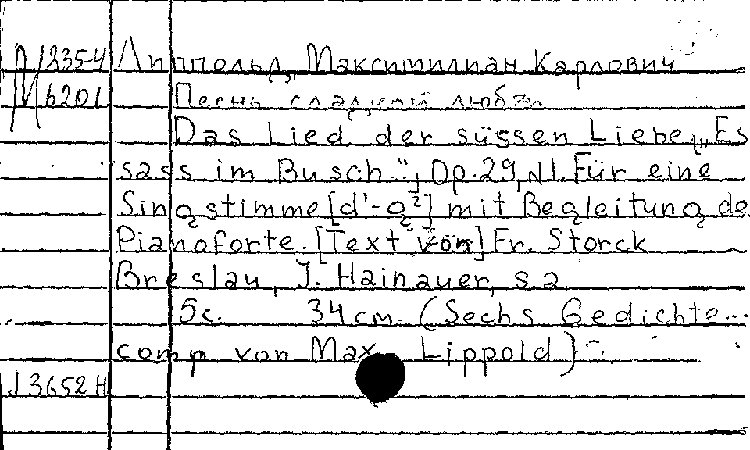 М 8354 Липпольд, Максимилиан Карлович
М 6201 Песнь сладкой любви
Das Lied der süssen Liebe („Es
sass im Busch“), Op. 29, N1. Für eine
Singstimme [d¹-g²] mit Begleitung de
Pianoforte. [Text von] Fr. Storck
Breslau, J. Hainauer, s a
5 с. 34 cm. (Sechs Gedichte...
comp von Max Lippold)